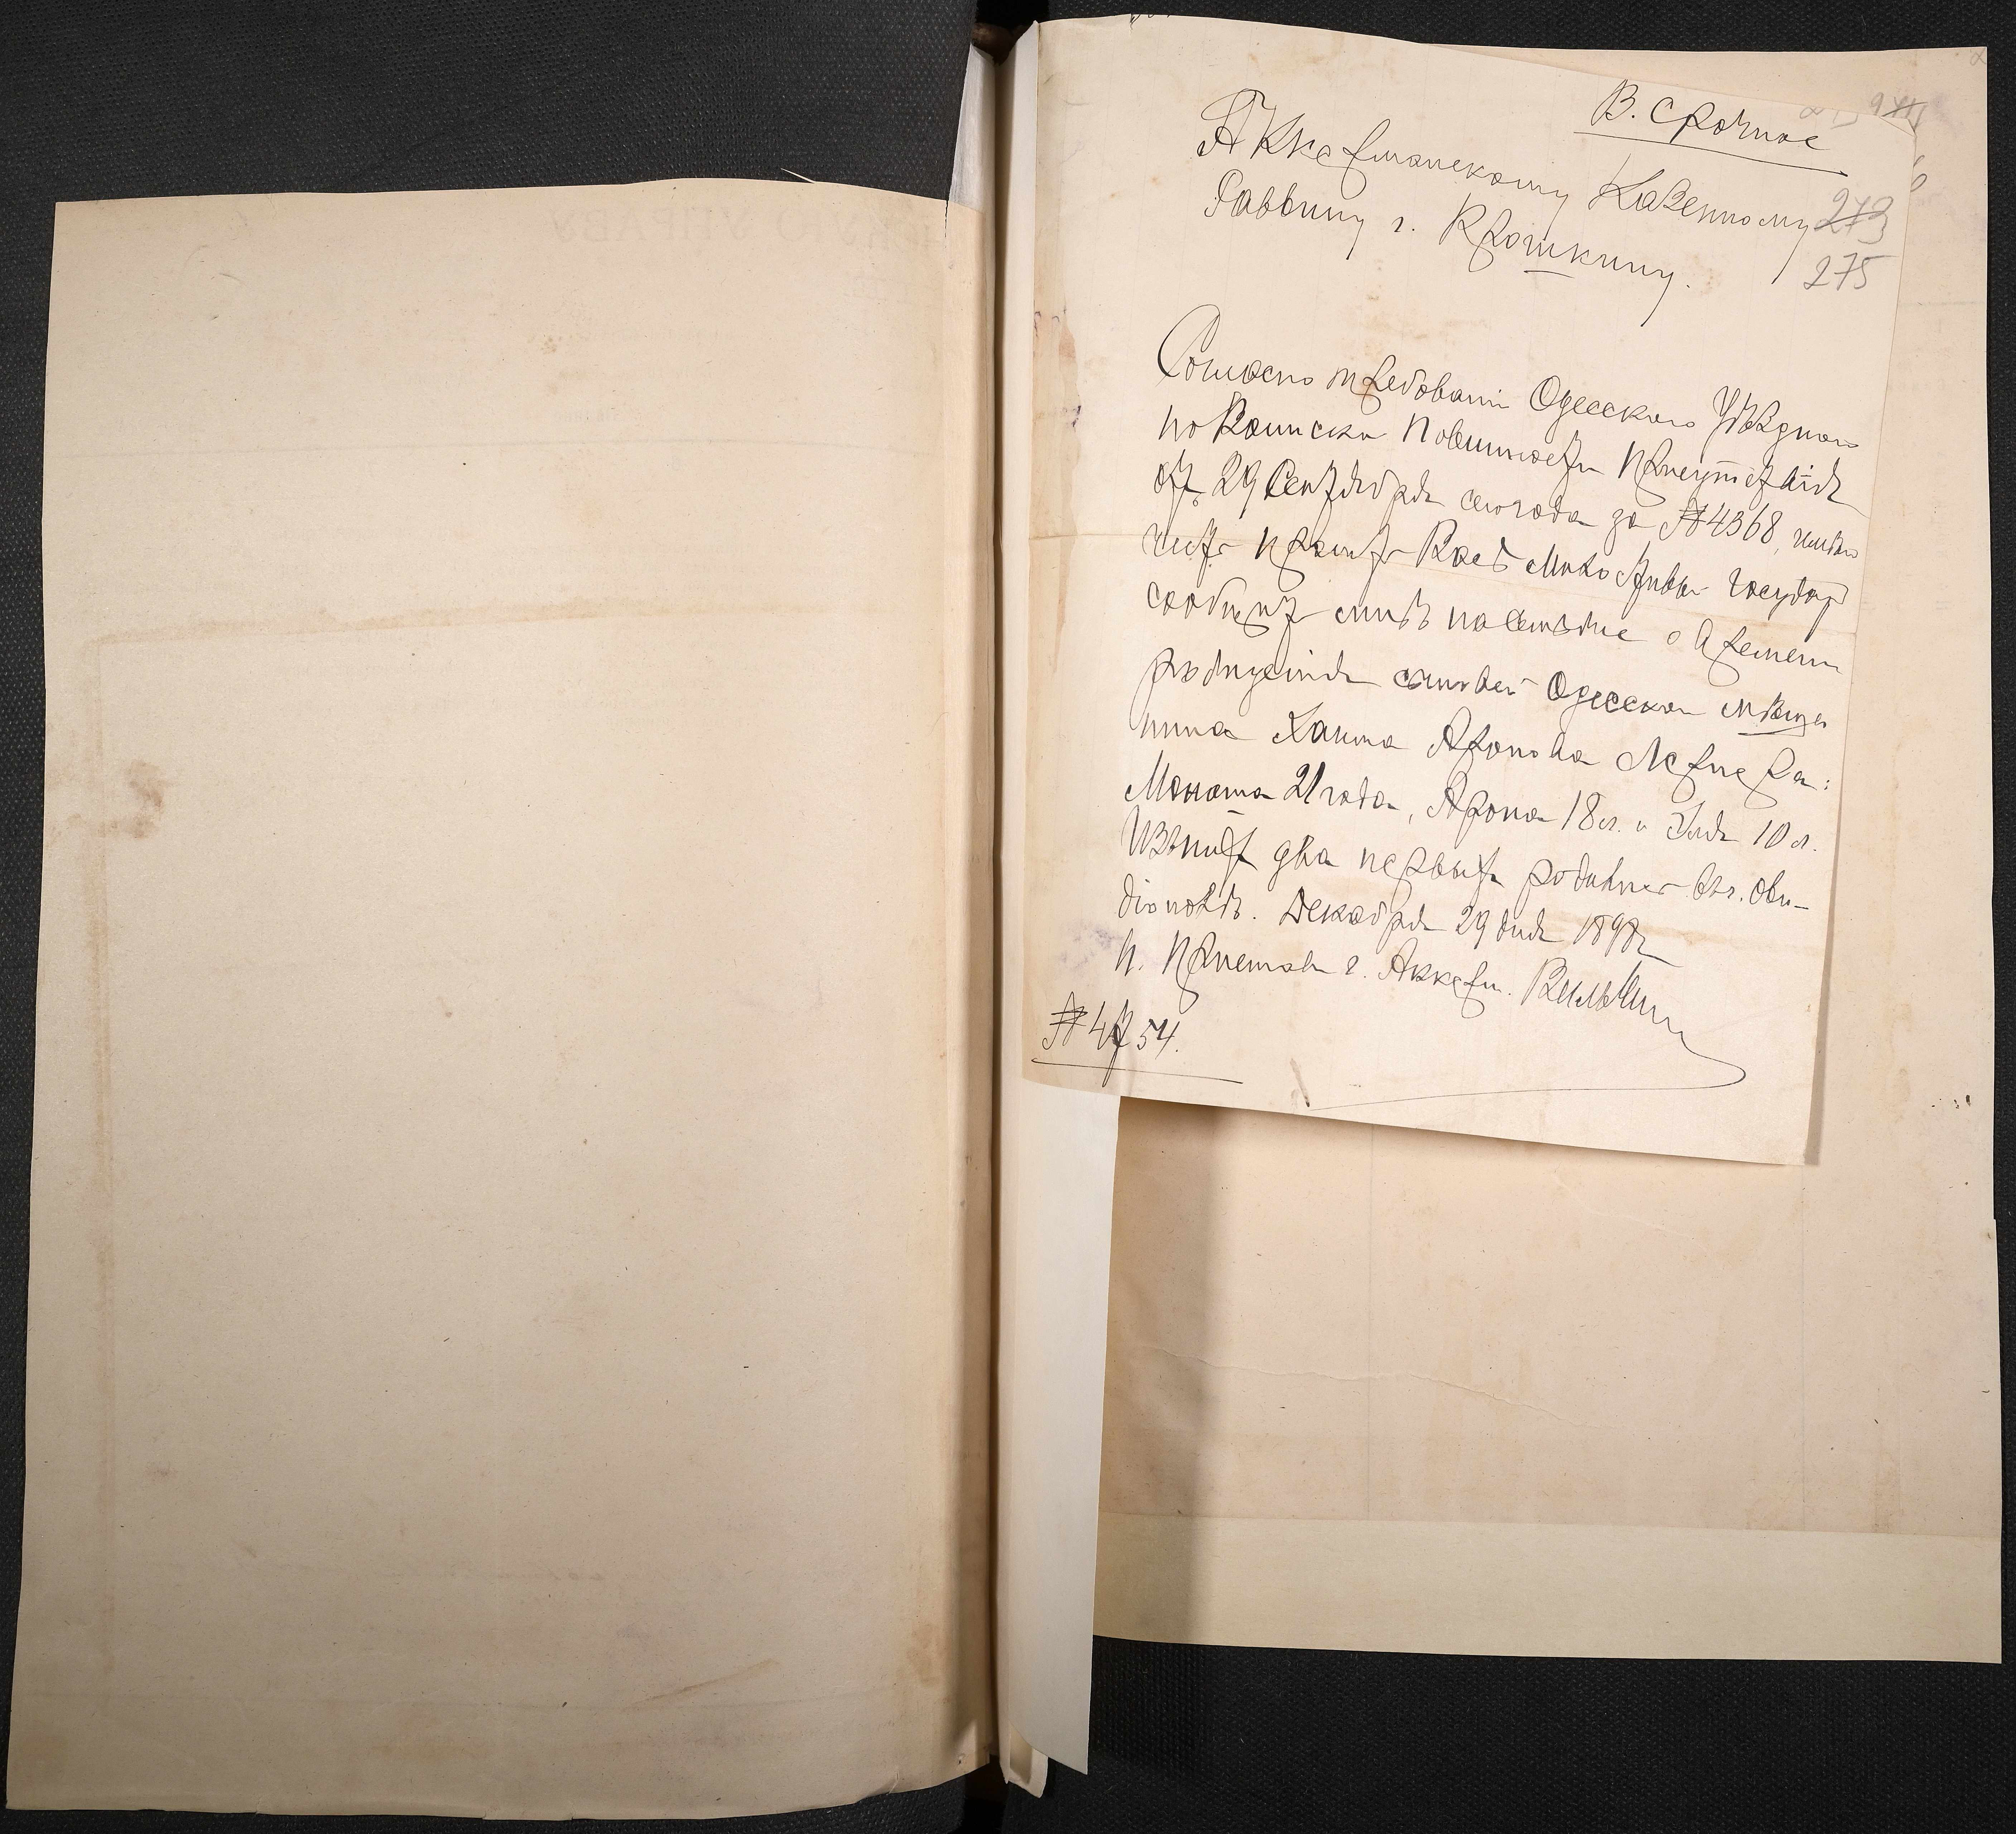 В. Срочное
Аккерманскому Казенному
Раввину г. Крошкину.
273
275
Согласно требованія Одесскаго Уѣзднаго
по Воинской Повинности Присутствія
отъ 29 Сентября сего года за № 4368, имѣю
честь просить Васъ Милостивый Государь
сообщить мнѣ свѣдѣніе о времени
рожденія сыновей Одесскаго мѣща
нина Хаима Аронова Лернера:
Манаша 21 года, Арона 18 л. и Эля 10 л.
Изъ нихъ два первыхъ родились въ г. Ови-
діополѣ. Декабря 29 дня 1898 г.
П. Приставъ г. Аккерм.
№ 4754.